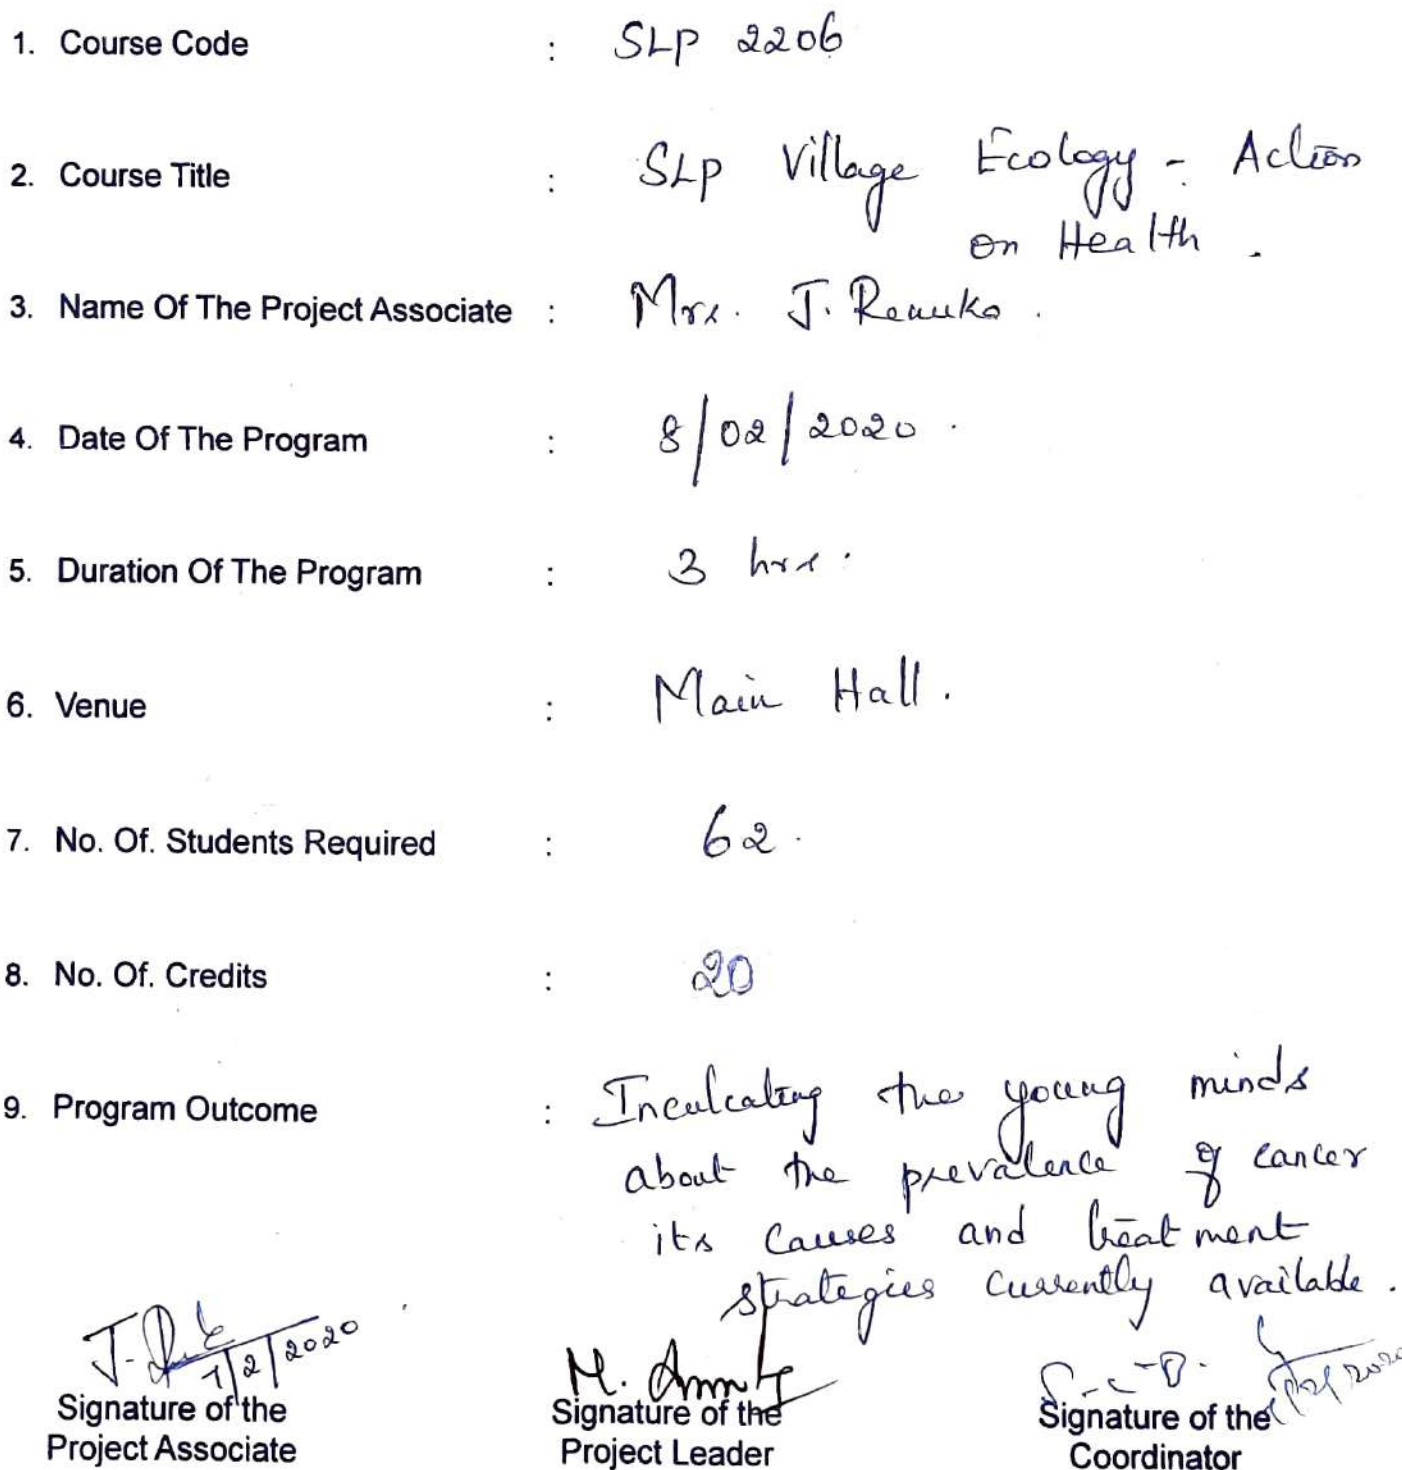 1. Course Code : SLP 2206
2. Course Title : SLP Village Ecology - Action
on Health.
3. Name Of The Project Associate : Mrs. J. Renuka.
4. Date Of The Program : 8/02/2020.
5. Duration Of The Program : 3 hrs.
6. Venue : Main Hall.
7. No. Of. Students Required : 62.
8. No. Of. Credits : 20
9. Program Outcome : Inculcating the young minds
about the prevalence of cancer
its causes and treatment
strategies currently available.
J. 7/2/2020
M.
Signature of the Project Associate
Signature of the Project Leader
Signature of the Coordinator